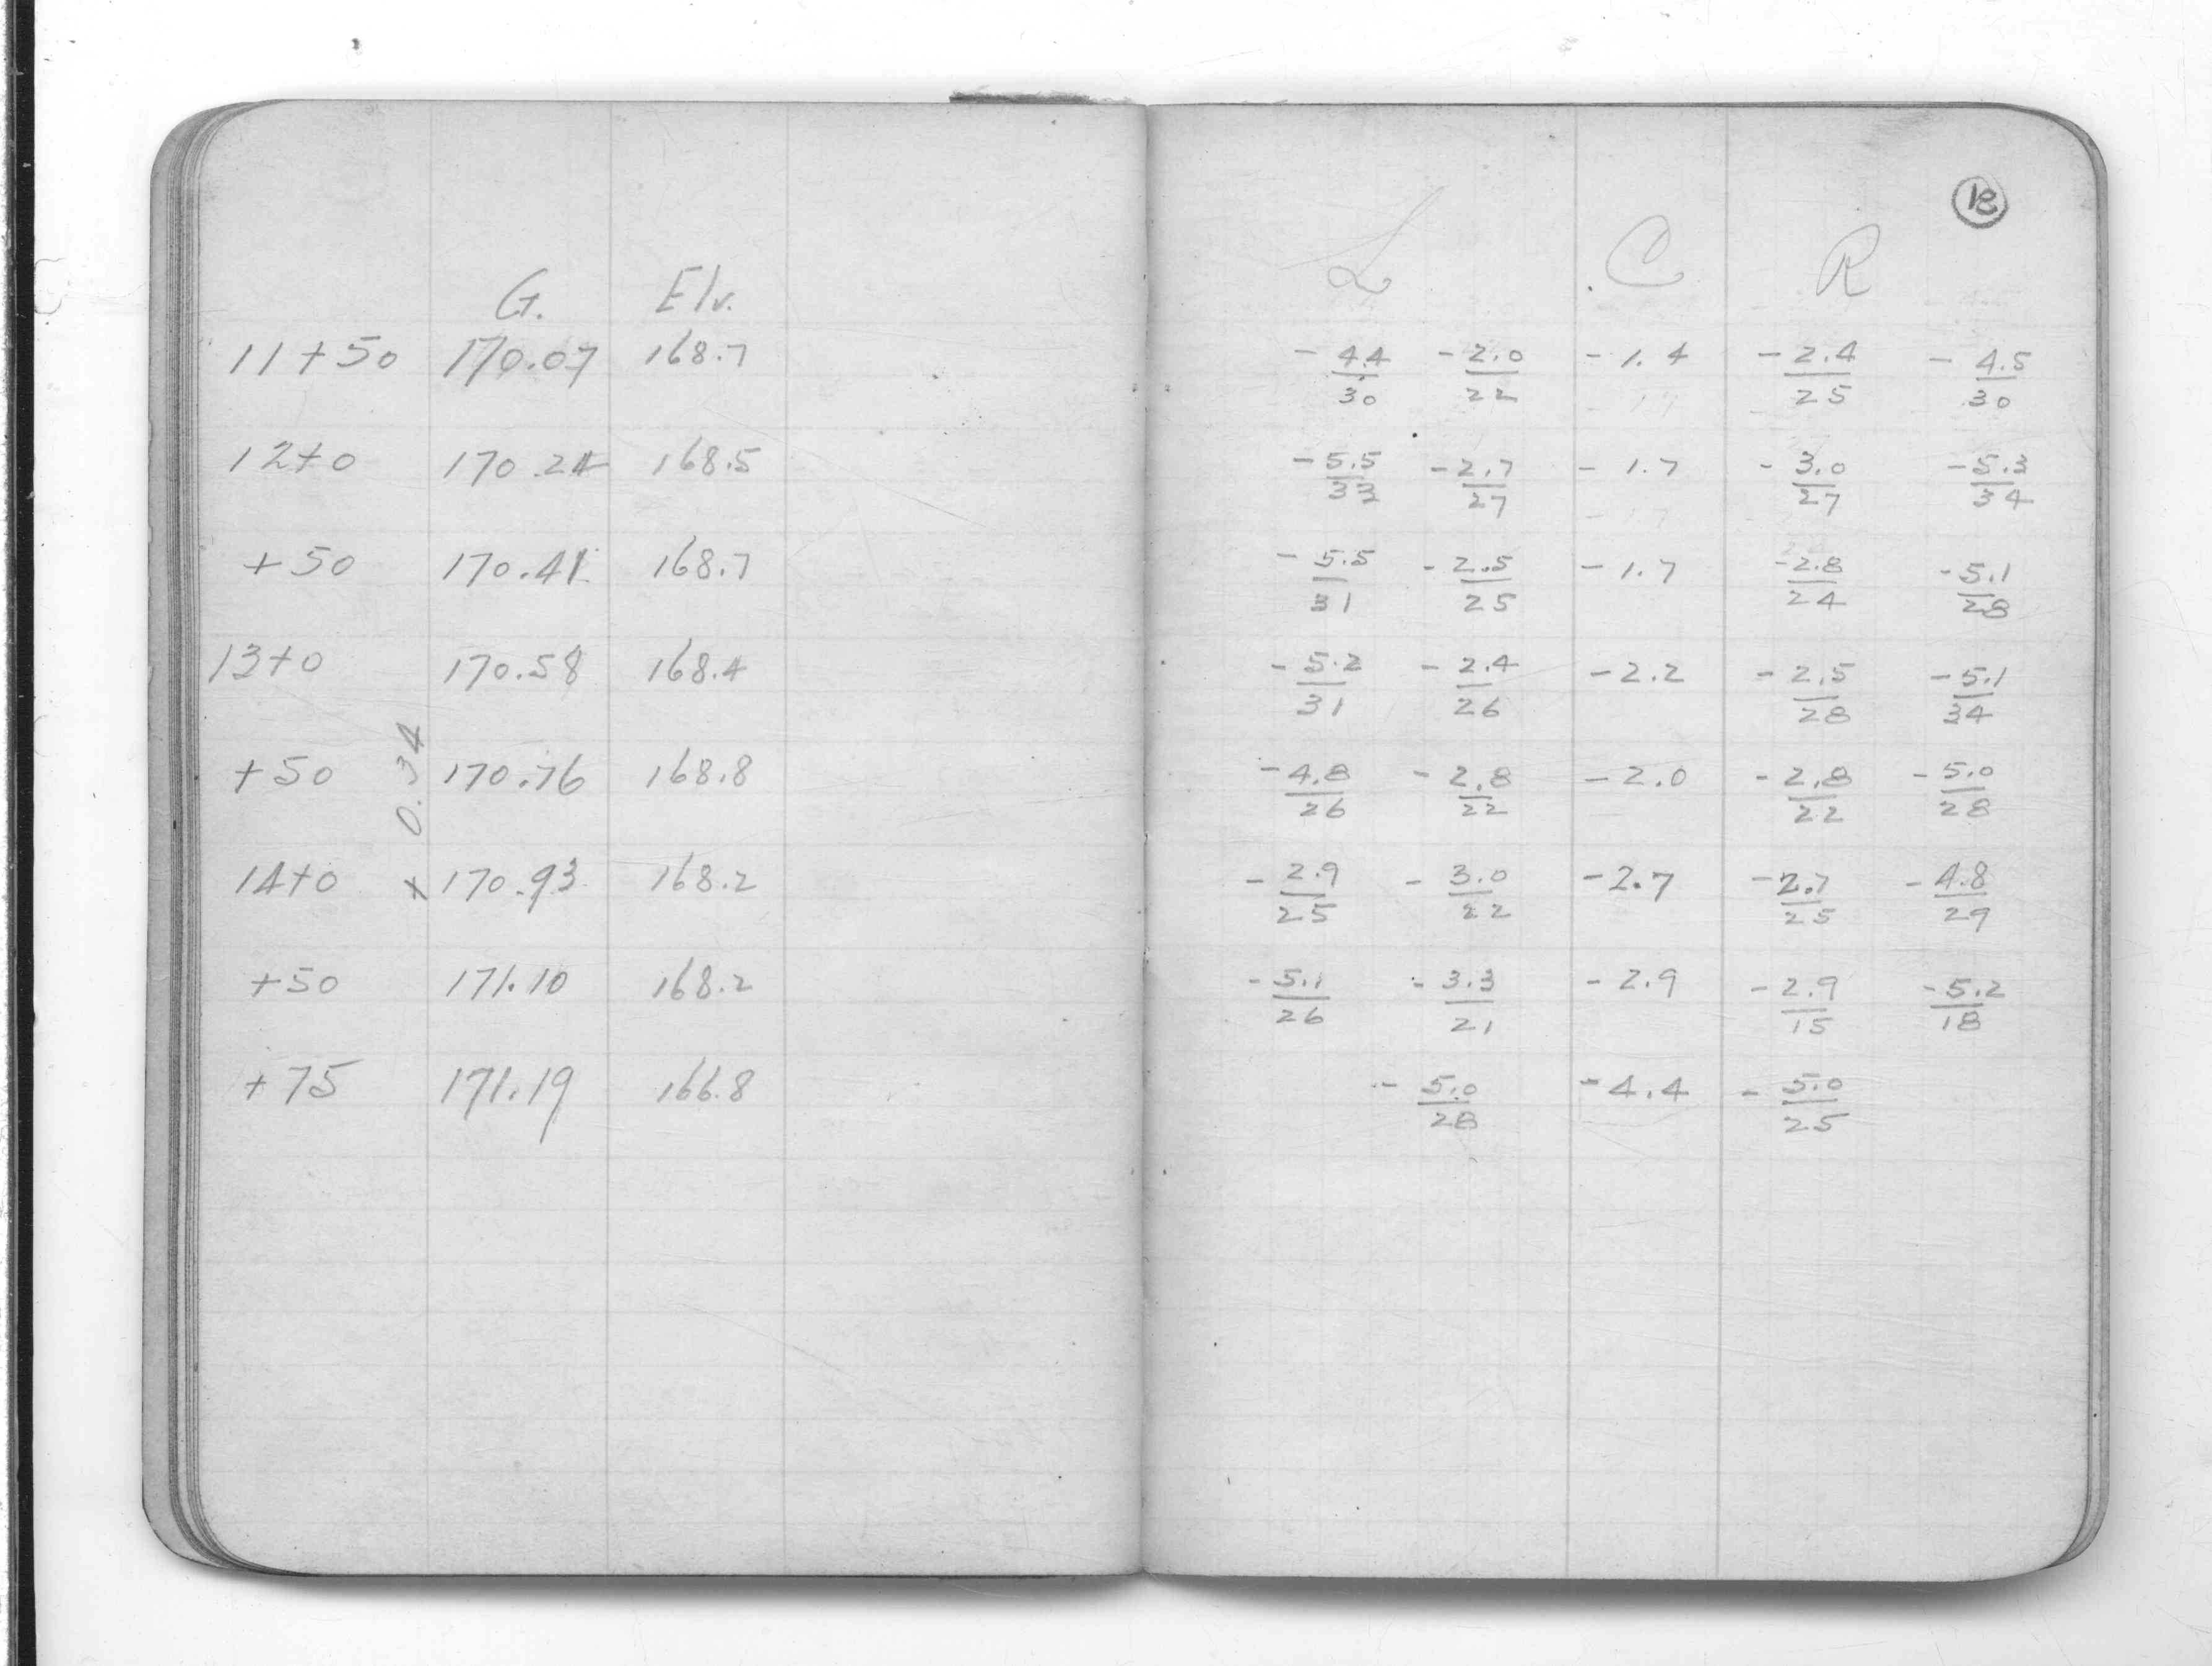 18
G. Elv. L C R
11+50 170.07 168.7 -4.4/30 -2.0/22 -1.4 -2.4/25 -4.5/30
12+0 170.24 168.5 -5.5/33 -2.7/27 -1.7 -3.0/27 -5.3/34
+50 170.41 168.7 -5.5/31 -2.5/25 -1.7 -2.8/24 -5.1/28
13+0 170.58 168.4 -5.2/31 -2.4/26 -2.2 -2.5/28 -5.1/34
+50 170.76 168.8 -4.8/26 -2.8/22 -2.0 -2.8/22 -5.0/28
+ 0.34
14+0 170.93 168.2 -2.9/25 -3.0/22 -2.7 -2.7/25 -4.8/29
+50 171.10 168.2 -5.1/26 -3.3/21 -2.9 -2.9/15 -5.2/18
+75 171.19 166.8 -5.0/28 -4.4 -5.0/25